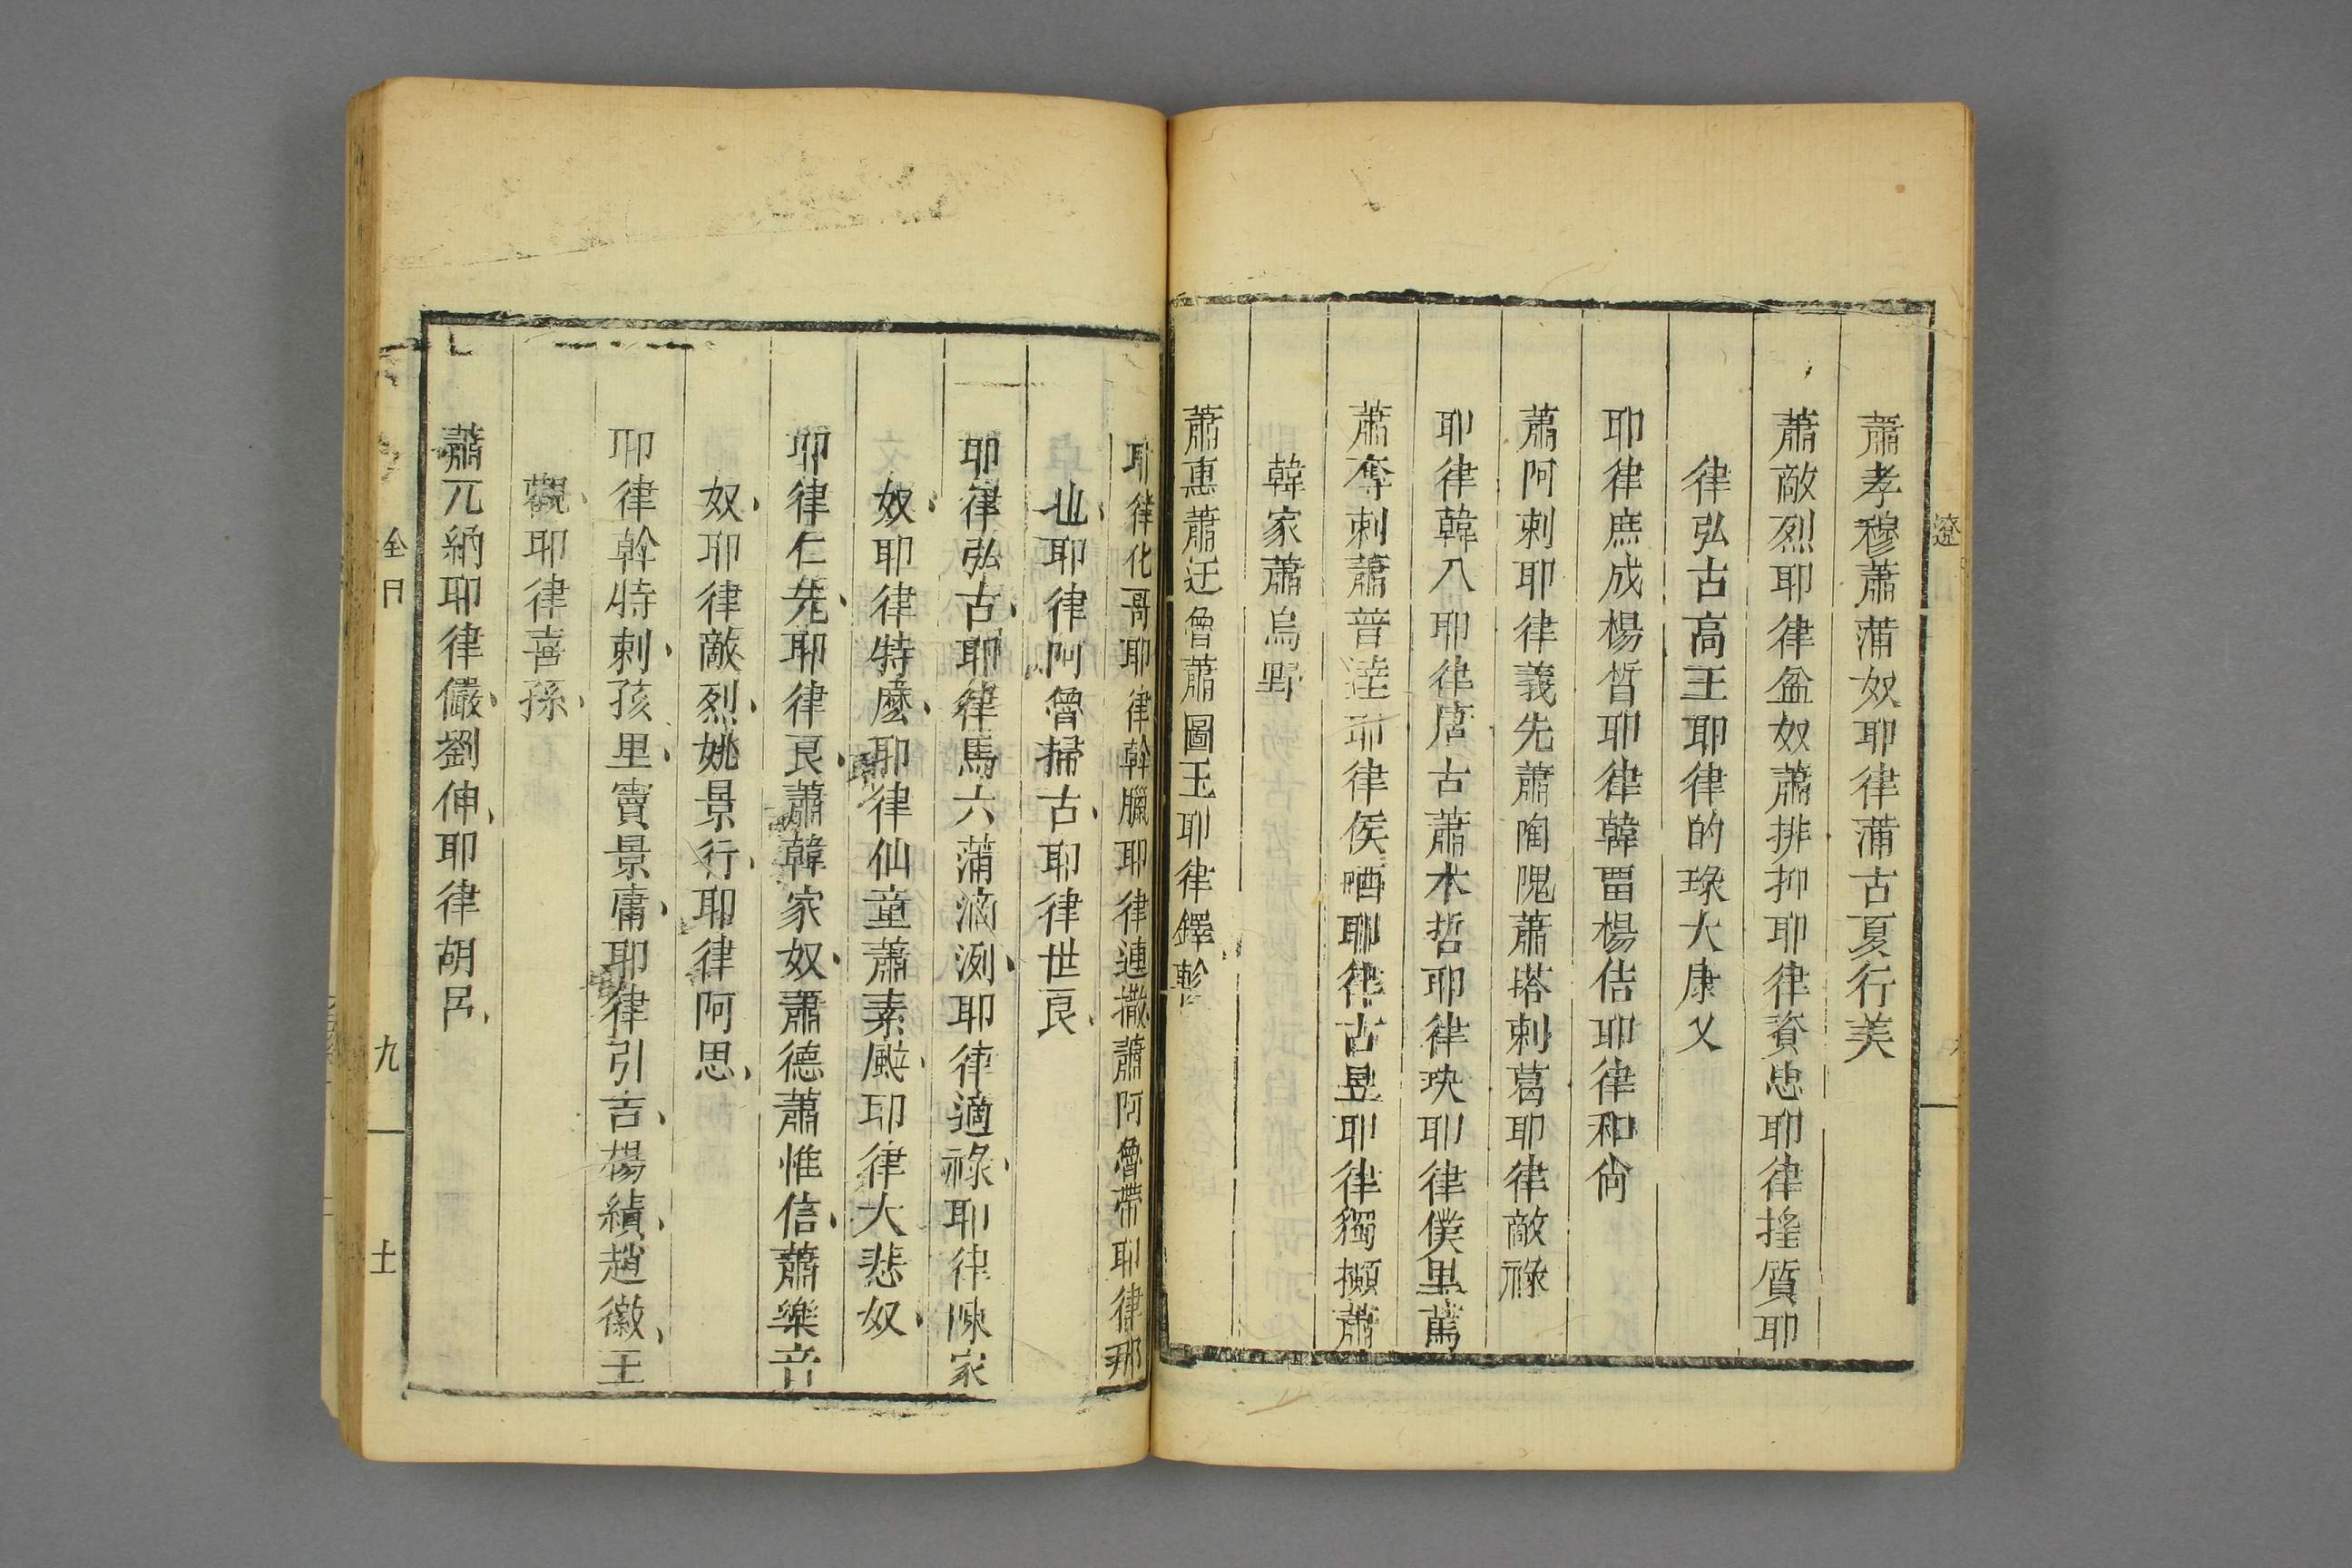 遼
蕭孝穆蕭蒲奴耶律蒲古夏行美
蕭敵烈耶律盆奴蕭排押耶律資忠耶律搖質耶
律弘古高王耶律的琭大康乂
耶律庶成楊晳耶律韓畱楊佶耶律和尙
蕭阿剌耶律義先蕭陶隗蕭塔剌葛耶律敵祿
耶律韓八耶律唐古蕭木哲耶律玦耶律僕里蕭
蕭奪剌蕭普達耶律侯哂耶律古昱耶律獨攧蕭
韓家蕭烏野
蕭惠蕭迂魯蕭圖玉耶律鐸軫
耶律化哥耶律斡臘耶律連撒蕭阿魯帶耶律那
也耶律阿魯掃古耶律世良
耶律弘古耶律馬六蒲滴洌耶律適祿耶律陳家
奴耶律特麽耶律仙童蕭素颯耶律大悲奴
耶律仁先耶律良蕭韓家奴蕭德蕭惟信蕭樂音
奴耶律敵烈姚景行耶律阿思
耶律斡特剌孩里竇景庸耶律引吉楊績趙徽王
觀耶律喜孫
蕭兀納耶律儼劉伸耶律胡呂
全目
九
士